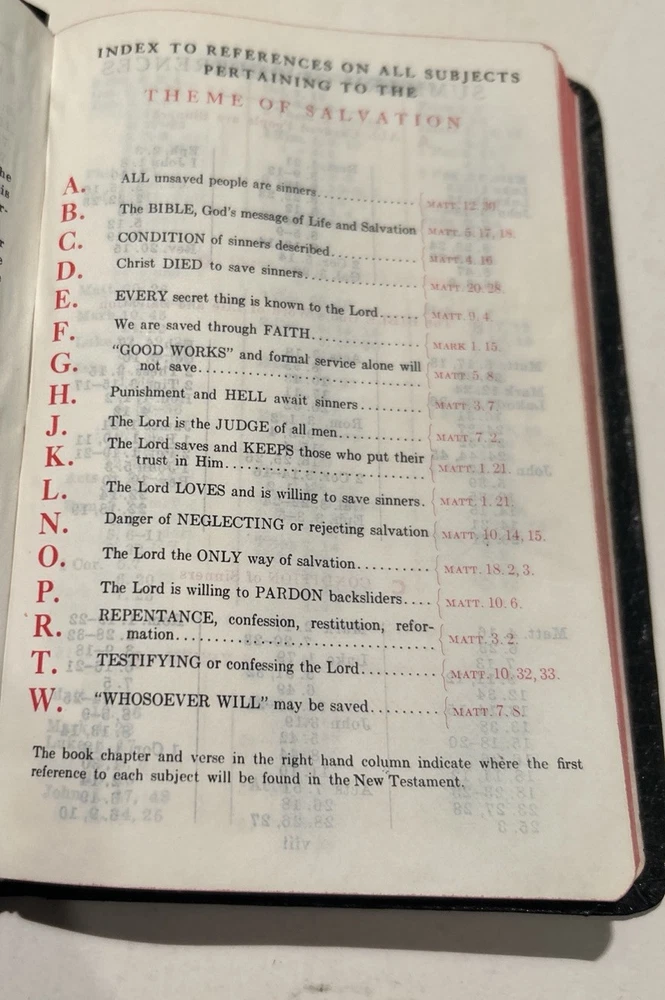 INDEX TO REFERENCES ON ALL SUBJECTS
PERTAINING TO THE
THEME OF SALVATION
A. ALL unsaved people are sinners................ MATT. 12. 30.
B. The BIBLE, God's message of Life and Salvation MATT. 5. 17, 18.
C. CONDITION of sinners described............. MATT. 4. 16
D. Christ DIED to save sinners.................. MATT. 20. 28.
E. EVERY secret thing is known to the Lord...... MATT. 9. 4.
F. We are saved through FAITH................. MARK 1. 15.
G. "GOOD WORKS" and formal service alone will
not save................................. MATT. 5. 8.
H. Punishment and HELL await sinners......... MATT. 3. 7.
J. The Lord is the JUDGE of all men............. MATT. 7. 2.
K. The Lord saves and KEEPS those who put their
trust in Him............................. MATT. 1. 21.
L. The Lord LOVES and is willing to save sinners. MATT. 1. 21.
N. Danger of NEGLECTING or rejecting salvation MATT. 10. 14, 15.
O. The Lord the ONLY way of salvation........... MATT. 18. 2, 3.
P. The Lord is willing to PARDON backsliders.... MATT. 10. 6.
R. REPENTANCE, confession, restitution, refor-
mation.................................... MATT. 3. 2.
T. TESTIFYING or confessing the Lord........... MATT. 10. 32, 33.
W. "WHOSOEVER WILL" may be saved.......... MATT. 7. 8.
The book chapter and verse in the right hand column indicate where the first
reference to each subject will be found in the New Testament.